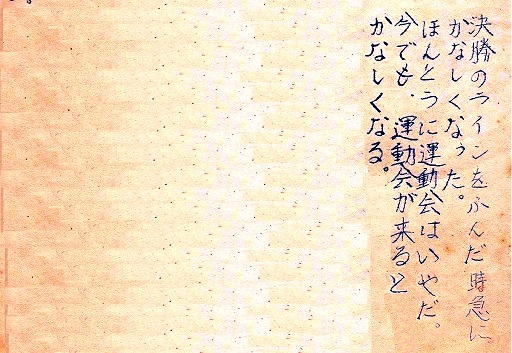 決勝のラインをふんだ時急に
かなしくなった。
ほんとうに運動会はいやだ。
今でも、運動会が来ると
かなしくなる。